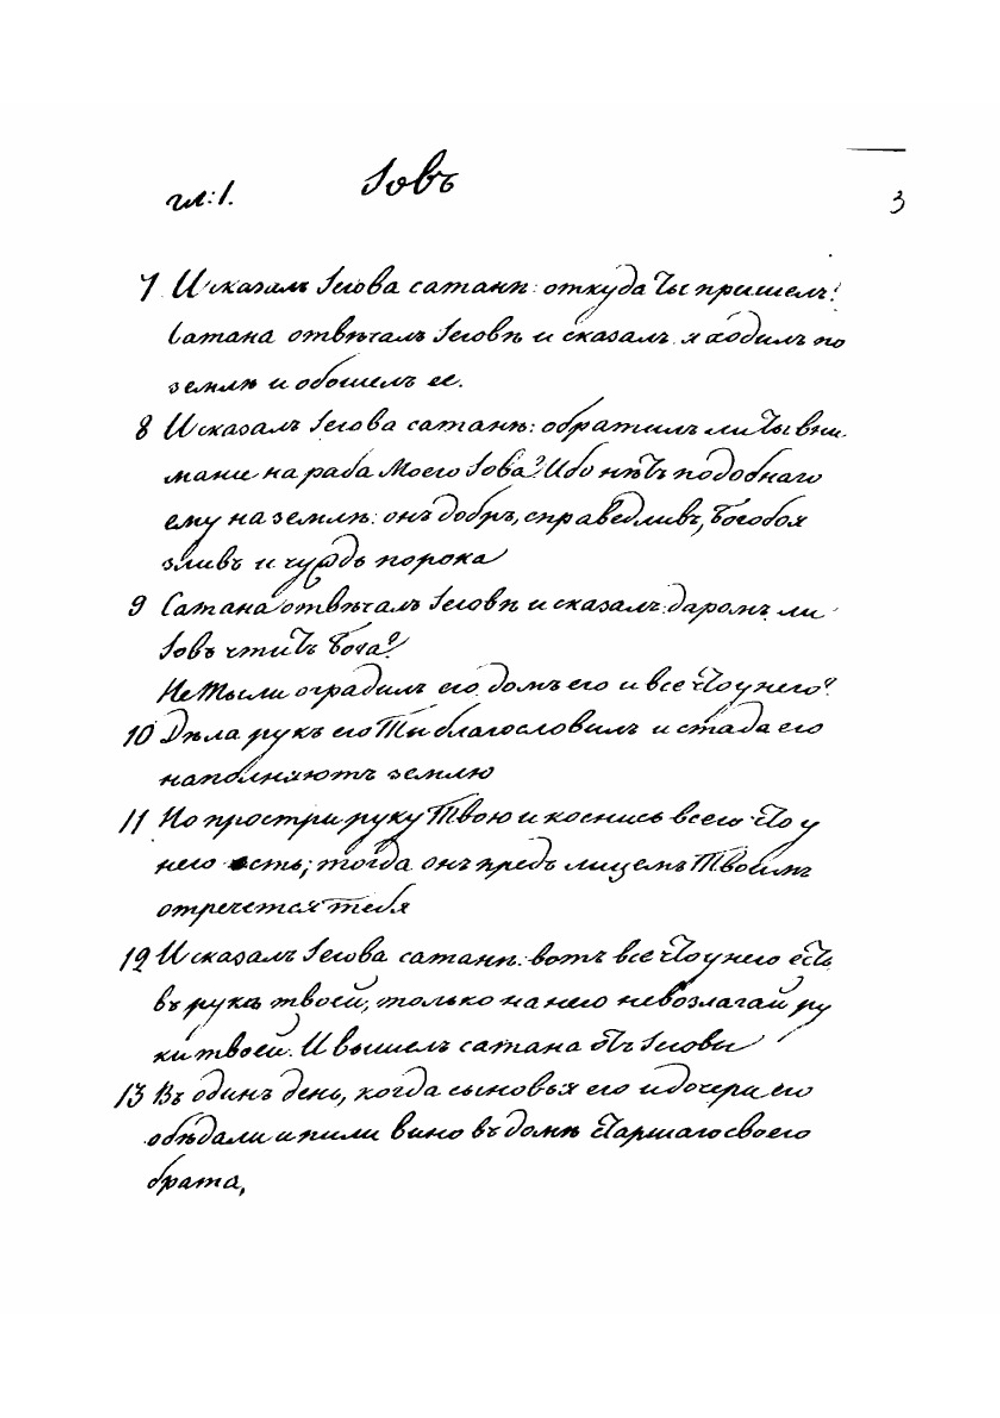 гл: 1.
Іовъ
3
7 И сказалъ Іегова сатанѣ: откуда ты пришелъ?
Сатана отвѣчалъ Іеговѣ и сказалъ: я ходилъ по
землѣ и обошелъ ее.
8 И сказалъ Іегова сатанѣ: обратилъ ли ты вни
мание на раба Моего Іова? Ибо нѣтъ подобнаго
ему на землѣ: онъ добръ, справедливъ, богобоя
зливъ и чуждъ порока
9 Сатана отвѣчалъ Іеговѣ и сказалъ: даромъ ли
Іовъ чтитъ Бога?
Не Ты ли оградилъ его, домъ его и все что у него?
10 Дѣла рукъ его Ты благословилъ и стада его
наполняютъ землю
11 Но простри руку Твою и коснись всего что у
него есть; тогда онъ предъ лицемъ Твоимъ
отречется тебя
12 И сказалъ Іегова сатанѣ: вотъ все что у него есть
въ рукѣ твоей, только на него невозлагай ру
ки твоей. И вышелъ сатана отъ Іеговы
13 Въ одинъ день, когда сыновья его и дочери его
обѣдали и пили вино въ домѣ старшаго своего
брата,